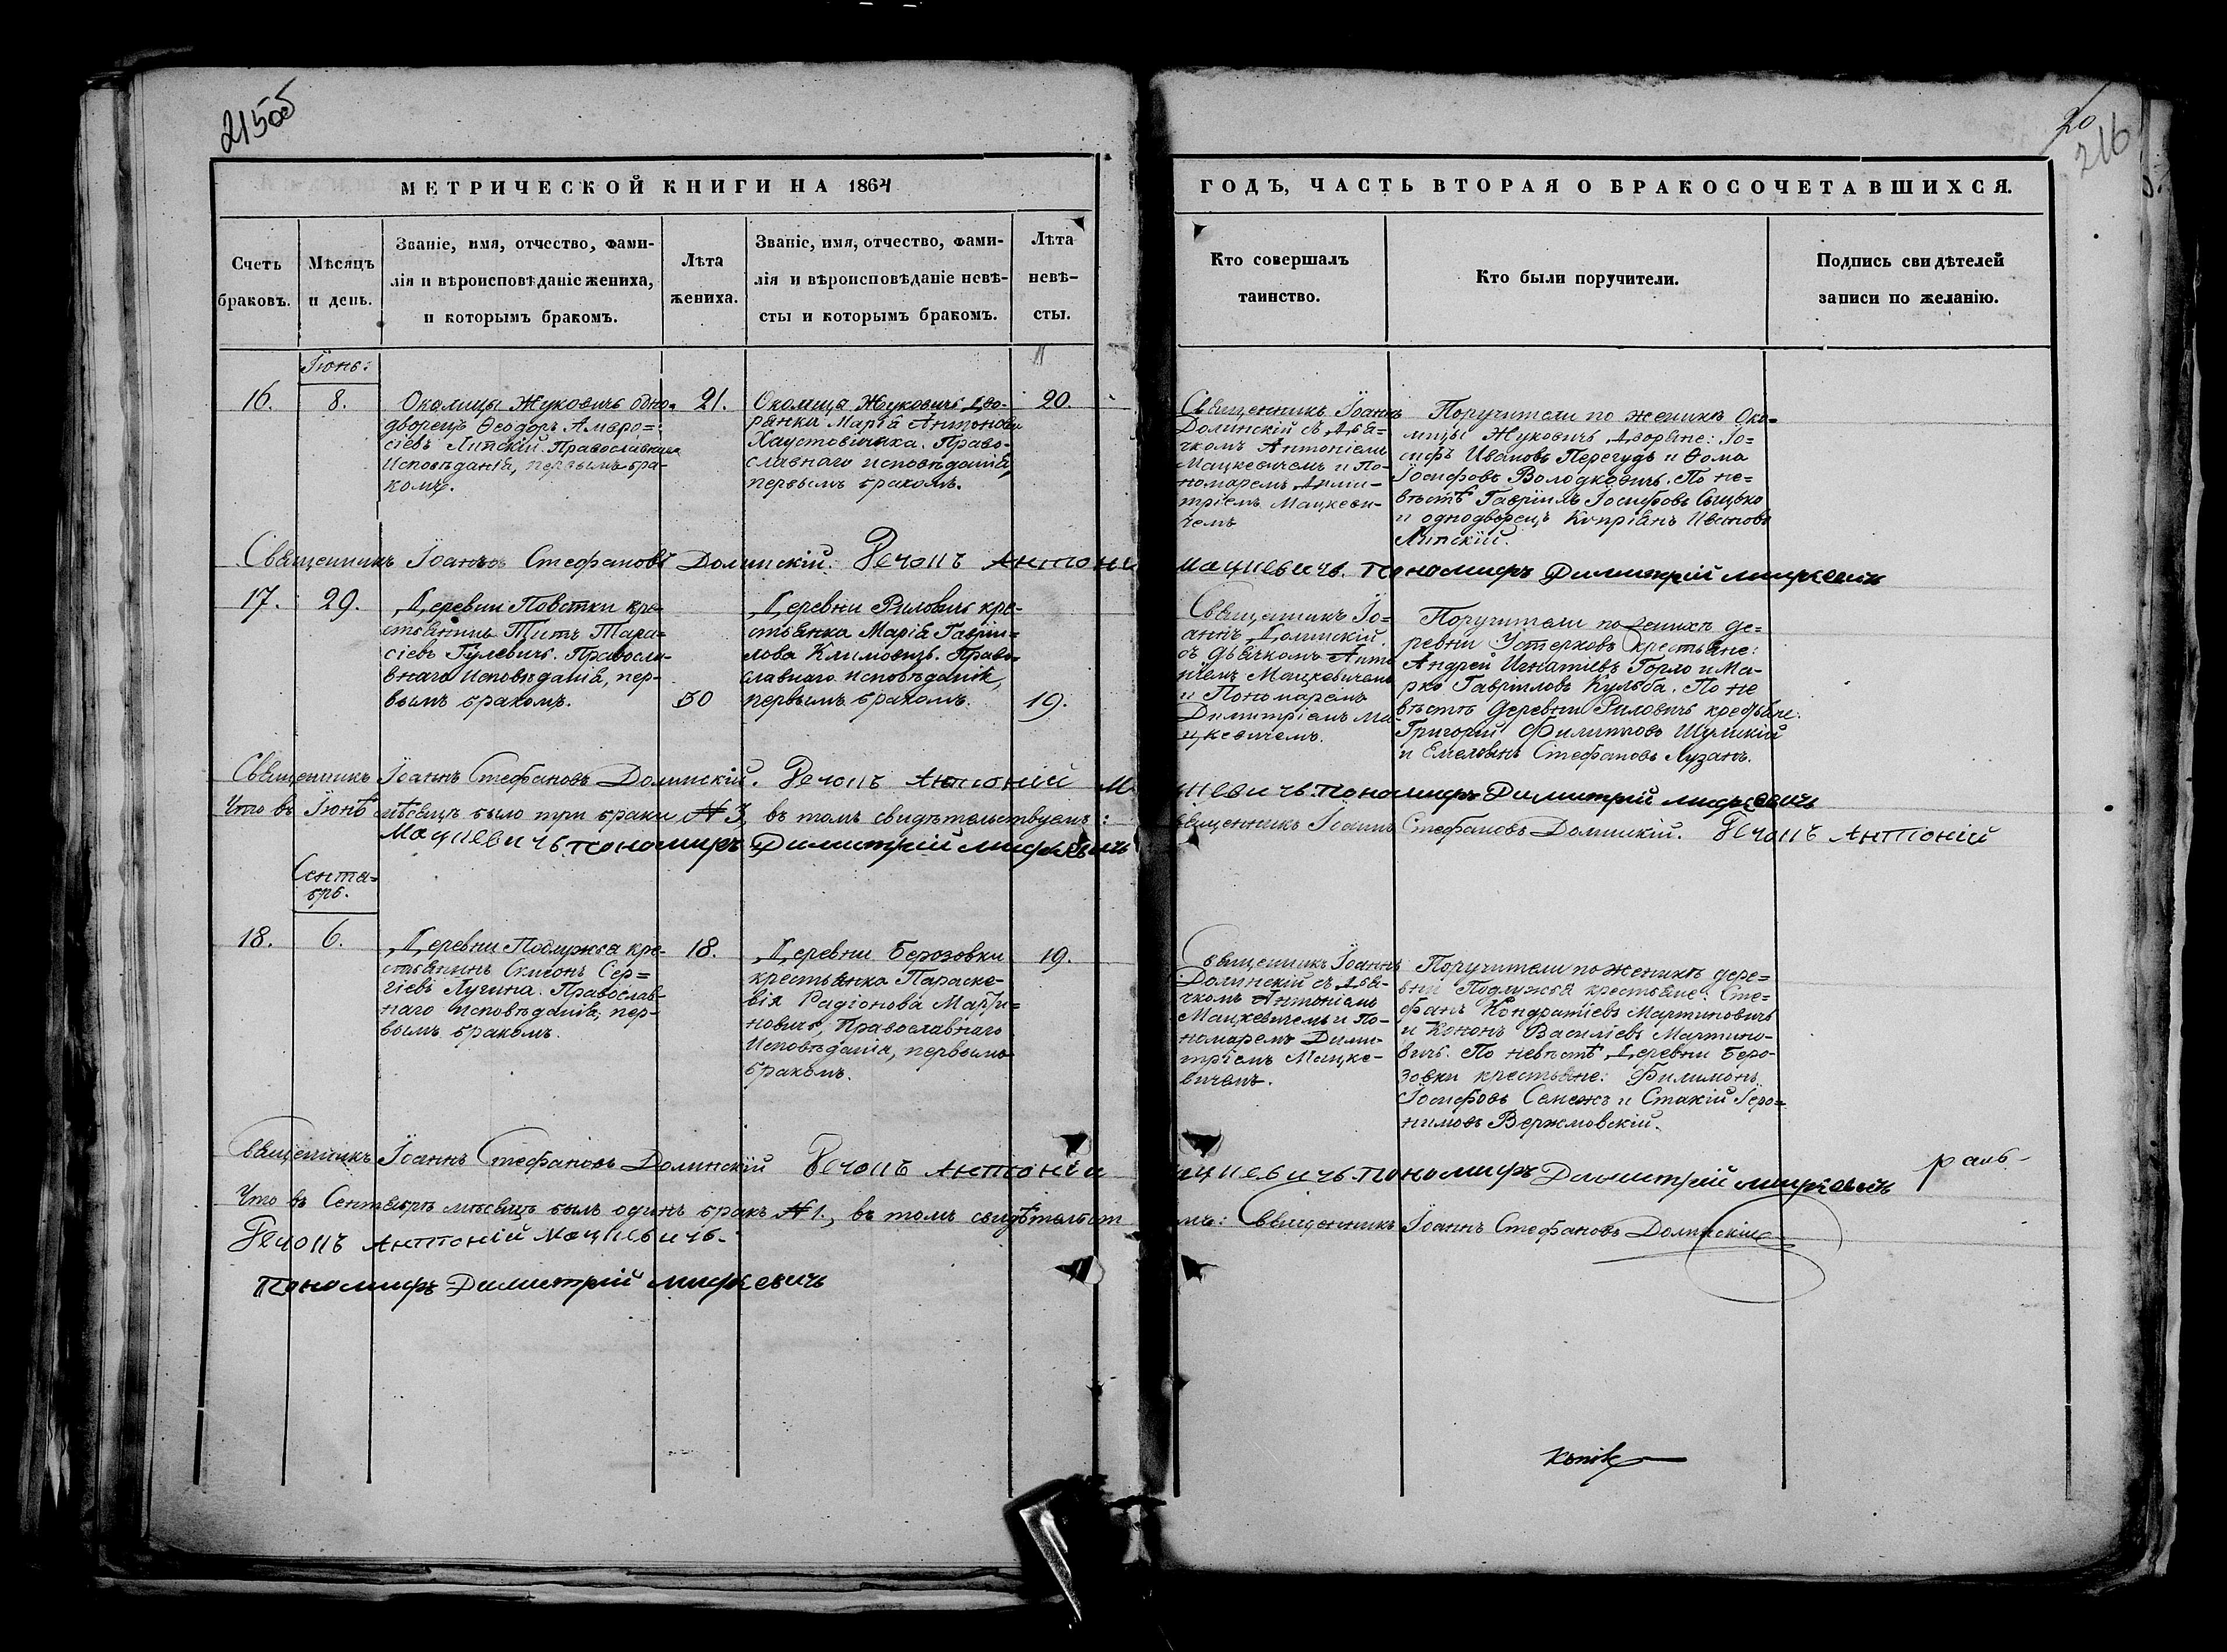 215об
20
216
МЕТРИЧЕСКОЙ КНИГИ НА 1864
ГОДЪ, ЧАСТЬ ВТОРАЯ О БРАКОСОЧЕТАВШИХСЯ.
Счетъ
браковъ.
Мѣсяцъ
и день.
Званіе, имя, отчество, фами-
лія и вѣроисповѣданіе жениха,
и которымъ бракомъ.
Лѣта
жениха.
Званіе, имя, отчество, фами-
лія и вѣроисповѣданіе невѣ-
сты и которымъ бракомъ.
Лѣта
невѣ-
сты.
Кто совершалъ
таинство.
Кто были поручители.
Подпись свидѣтелей
записи по желанію.
Іюнь:
16.
8.
Околицы Жуковичъ одно-
дворецъ Ѳеодоръ Амвро=
сіевъ Липскій. Православнаго
Исповѣданія, первымъ бра-
комъ.
21.
Околицы Жуковичъ дво-
рянка Марія Антонова
Хаустовичка. Право-
славнаго исповѣданія,
первымъ бракомъ.
20.
Священникъ Іоаннъ
Долинскій съ Дья=
чкомъ Антоніемъ
Мацкевичемъ и По-
номаремъ Дими-
тріемъ Мацкеви-
чемъ
Поручители по женихѣ Око=
лицы Жуковичъ Дворяне: Іо-
сифъ Ивановъ Перегудъ и Ѳома
Іосифовъ Володкевичъ. По не=
вѣстѣ Гавріилъ Іосифовъ
и однодворецъ Кипріанъ Ивановъ
Липскій.
Священникъ Іоаннъ Стефановъ Долинскій. Антоній Мацкевичъ. Пономарь Димитрій Мацкевичъ
17.
29.
Деревни Повстки кре-
стьянинъ Титъ Тара-
сіевъ Гулевичъ. Правосла-
внаго Исповѣданія, пер-
вымъ бракомъ.
30
Деревни Риловичъ кре-
стьянка Марія Гаврии=
лова Климовичъ. Право-
славнаго исповѣданія,
первымъ бракомъ.
19.
Священникъ Іо-
аннъ Долинскій
съ дьячкомъ Анто
ніемъ Мацкевичемъ
и Пономаремъ
Димитріемъ Ма-
цкевичемъ.
Поручители по женихѣ де=
ревни Устерковъ Крестьяне:
Андрей Игнатіевъ Горло и Ма-
рко Гавріиловъ Кульба. По не
вѣстѣ деревни Риловичъ крестьяне:
Григорій Филипповъ Шумскій
и Емельянъ Стефановъ Лузанъ.
Священникъ Іоаннъ Стефановъ Долинскій. Антоній Мацкевичъ. Пономарь Димитрій Мацкевичъ
Что въ Іюнѣ мѣсяцѣ было три брака № 3, въ томъ свидѣтельствуемъ: Священникъ Іоаннъ Стефановъ Долинскій. Антоній
Мацкевичъ. Пономарь Димитрій Мацкевичъ
Сентя=
брь.
18.
6.
Деревни Подлужья кре-
стьянинъ Сер=
гіевъ Лучина. Православ-
наго исповѣданія, пер-
вымъ бракомъ.
18.
Деревни Берозовки
крестьянка Параске-
вія Радіонова Марти-
новичъ, Православнаго
Исповѣданія, первымъ
бракомъ.
19.
Священникъ Іоаннъ
Долинскій съ Дья-
чкомъ Антоніемъ
Мацкевичемъ и По-
номаремъ Дими-
тріемъ Мацке-
вичемъ.
Поручители по женихѣ дере=
вни Подлужья крестьяне: Сте-
фанъ Кондратіевъ Мартиновичъ
и Кононъ Василіевъ Мартино-
вичъ. По невѣстѣ Деревни Беро-
зовки крестьяне: Филимонъ
Іосифовъ Семежъ и Стахій Іеро=
нимовъ Вержмовскій.
Священникъ Іоаннъ Стефановъ Долинскій Антоній Мацкевичъ. Пономарь Димитрій Мацкевичъ
Что въ Сентябрѣ мѣсяцѣ былъ одинъ бракъ № 1., въ томъ Священникъ Іоаннъ Стефановъ Долинскій
Антоній Мацкевичъ.
Пономарь Димитрій Мацкевичъ